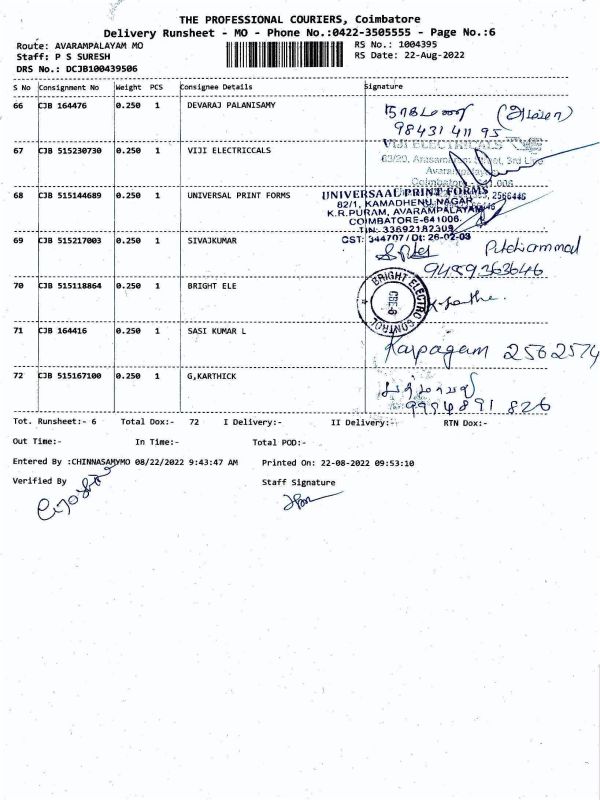 THE PROFESSIONAL COURIERS, Coimbatore
Delivery Runsheet - MO - Phone No.:0422-3505555 - Page No.:6
Route: AVARAMPALAYAM MO RS No.: 1004395
Staff: P S SURESH RS Date: 22-Aug-2022
DRS No.: DCJB100439506
S No Consignment No Weight PCS Consignee Details Signature
66 CJB 164476 0.250 1 DEVARAJ PALANISAMY
98431 411 95
67 CJB 515230730 0.250 1 VIJI ELECTRICCALS VIJI ELECTRICALS
63/20, Street, 3rd
68 CJB 515144689 0.250 1 UNIVERSAL PRINT FORMS UNIVERSAAL PRINT FORMS
82/1, KAMADHENU NAGAR
K.R.PURAM, AVARAMPALAYAM
COIMBATORE-641006.
TIN: 33692182309
CST: 344707 / Dt: 26-02-03
69 CJB 515217003 0.250 1 SIVAJKUMAR Pitchiammal
9489363646
70 CJB 515118864 0.250 1 BRIGHT ELE BRIGHT ELECTRO CONTROL CBE-6
71 CJB 164416 0.250 1 SASI KUMAR L
Karpagam 2562574
72 CJB 515167100 0.250 1 G,KARTHICK
9994891 826
Tot. Runsheet:- 6 Total Dox:- 72 I Delivery:- II Delivery:- RTN Dox:-
Out Time:- In Time:- Total POD:-
Entered By :CHINNASAMYMO 08/22/2022 9:43:47 AM Printed On: 22-08-2022 09:53:10
Verified By Staff Signature